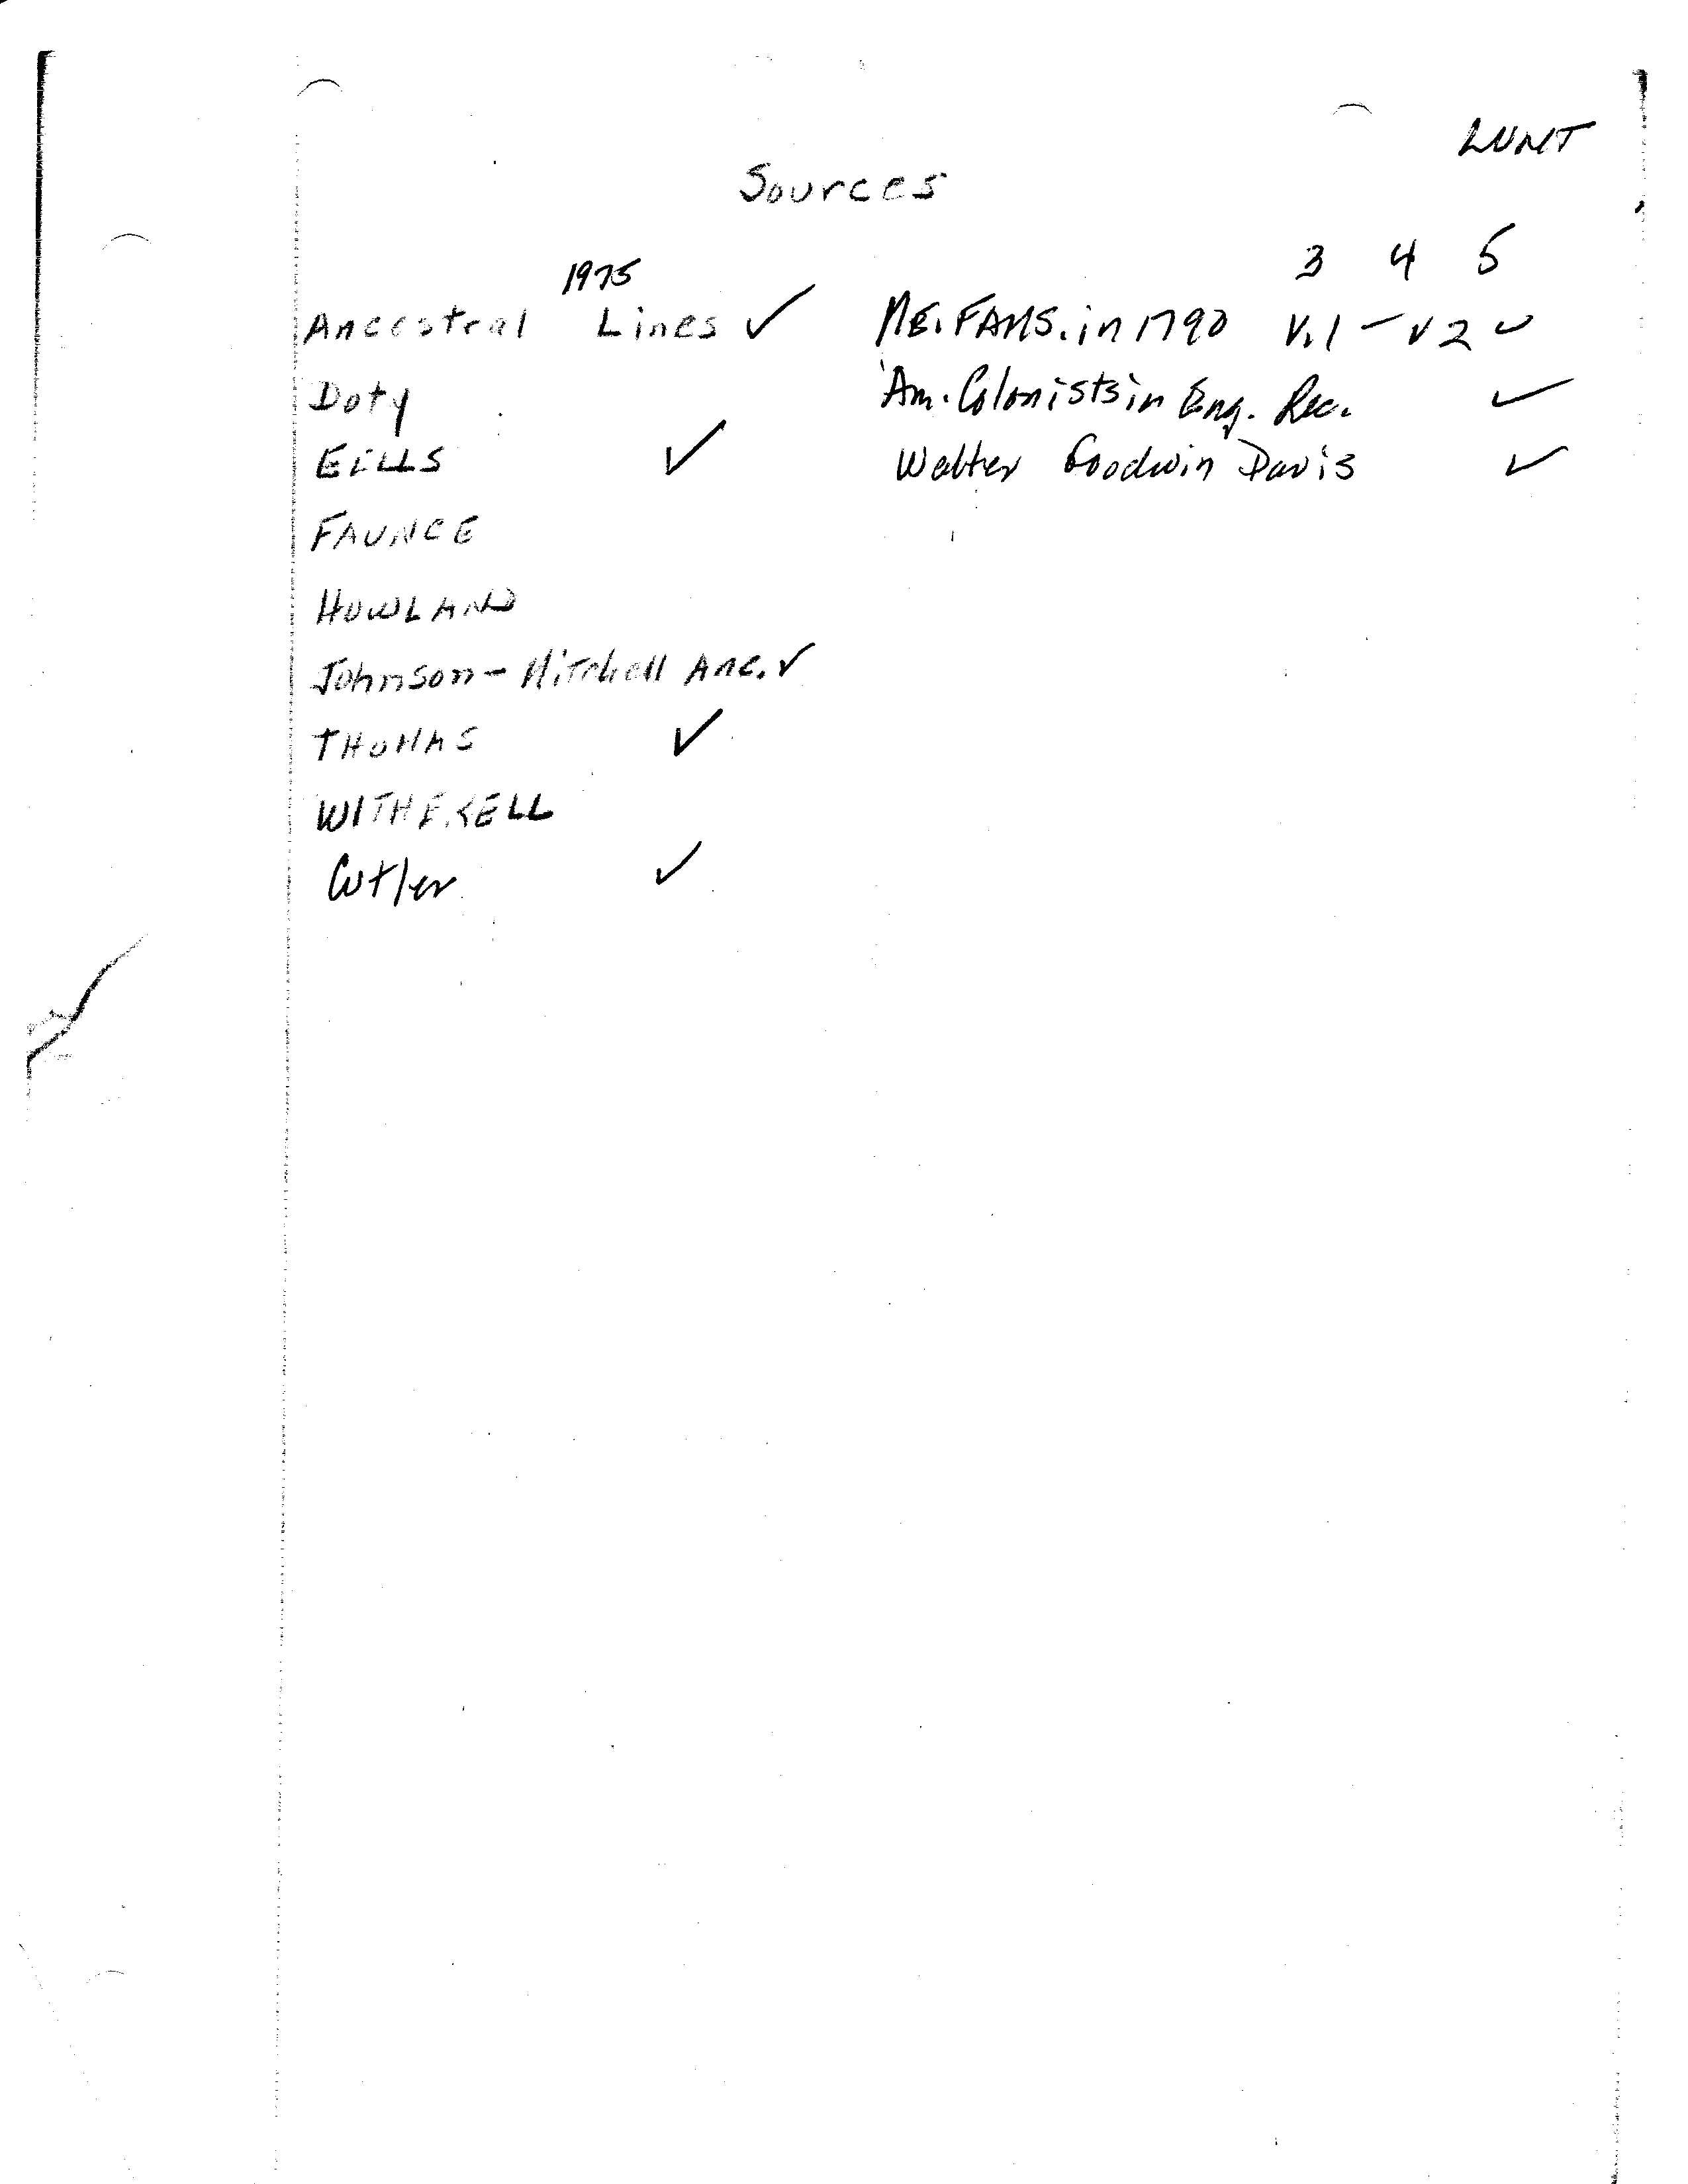 LUNT
Sources
1975
Ancestral Lines ✓
Doty
EELLS ✓
FAUNCE
HOWLAND
Johnson-Mitchell Anc. ✓
THOMAS ✓
WITHERELL
Cutler ✓
3 4 5
ME. FAMS. in 1790 V.1 - V2 ✓
Am. Colonists in Eng. Rec. ✓
Walter Goodwin Davis ✓